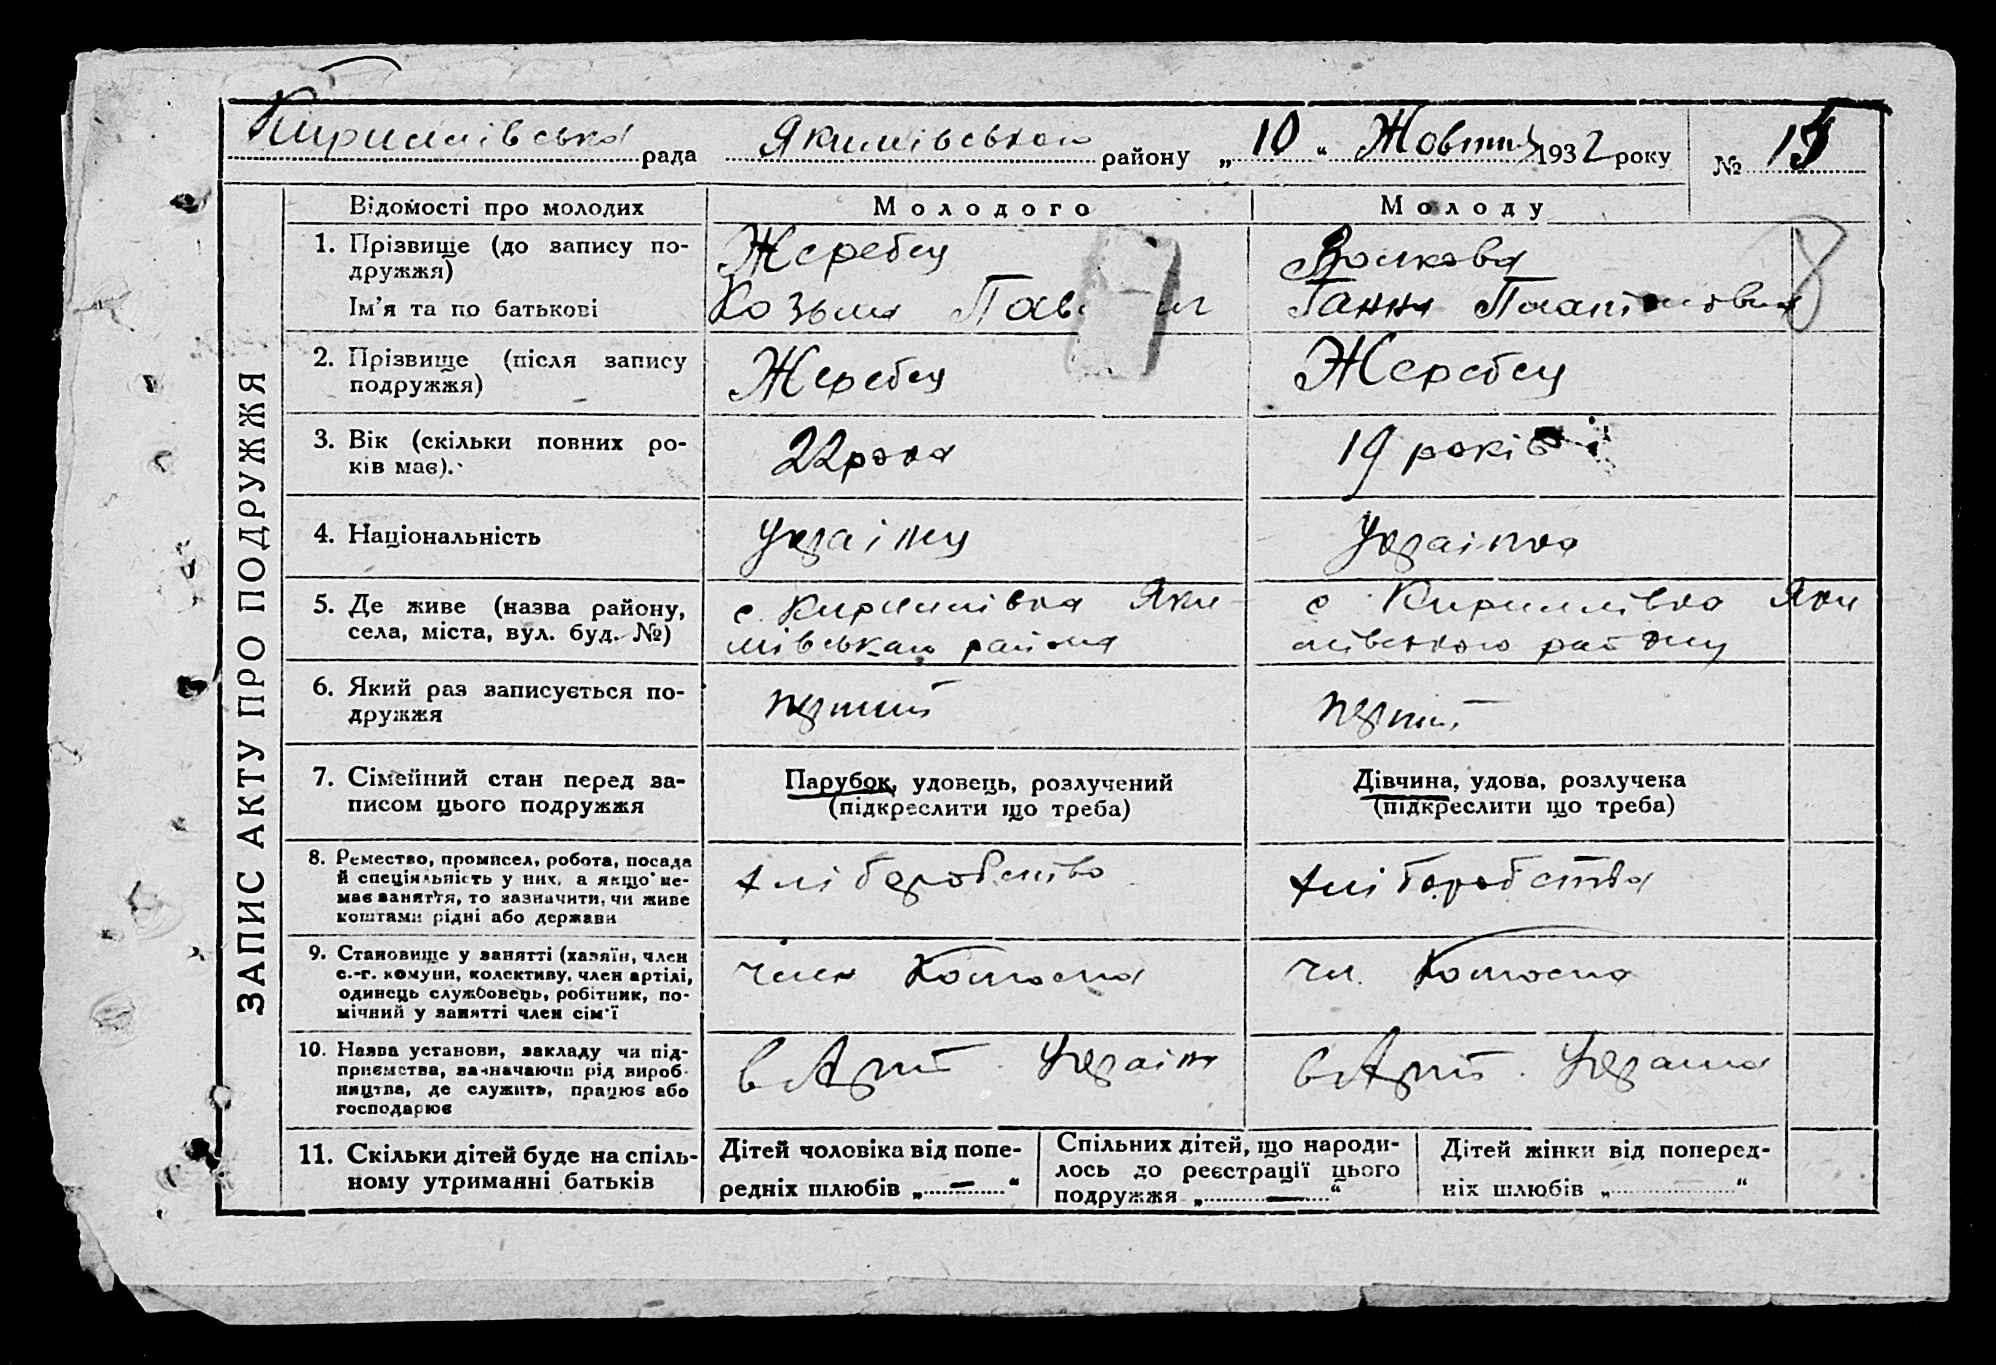 Кирилівська рада Якимівського району „10“ Жовтня 1932 року № 15
ЗАПИС АКТУ ПРО ПОДРУЖЖЯ
Відомості про молодих Молодого Молоду
1. Прізвище (до запису по-
дружжя) Жеребец Волкова
Ім'я та по батькові Козьма Ганна
2. Прізвище (після запису
подружжя) Жеребец Жеребец
3. Вік (скільки повних ро-
ків має). 22 рока 19 років
4. Національність Українец Українка
5. Де живе (назва району,
села, міста, вул. буд. №)
с. Кирилівка Яки
мівського района
с. Кирилівка Яки
мівського району
6. Який раз записується по-
дружжя перший перший
7. Сімейний стан перед за-
писом цього подружжя
Парубок, удовець, розлучений
(підкреслити що треба)
Дівчина, удова, розлучена
(підкреслити що треба)
8. Ремество, промисел, робота, посада
й спеціяльність у них, а якщо не-
має заняття, то зазначити, чи живе
коштами рідні або держави
хліборобство хліборобства
9. Становище у занятті (хазяїн, член
с.-г. комуни, колективу, член артілі,
одинець службовець, робітник, по-
мічний у занятті член сім'ї
член Колхоспа чл. Колхоспа
10. Назва установи, закладу чи під-
приємства, зазначаючи рід вироб-
ництва, де служить, працює або
господарює
в Арт. в Арт.
11. Скільки дітей буде на спіль-
ному утриманні батьків
Дітей чоловіка від попе-
редніх шлюбів „—“
Спільних дітей, що народи-
лось до реєстрації цього
подружжя „—“
Дітей жінки від поперед-
ніх шлюбів „ “